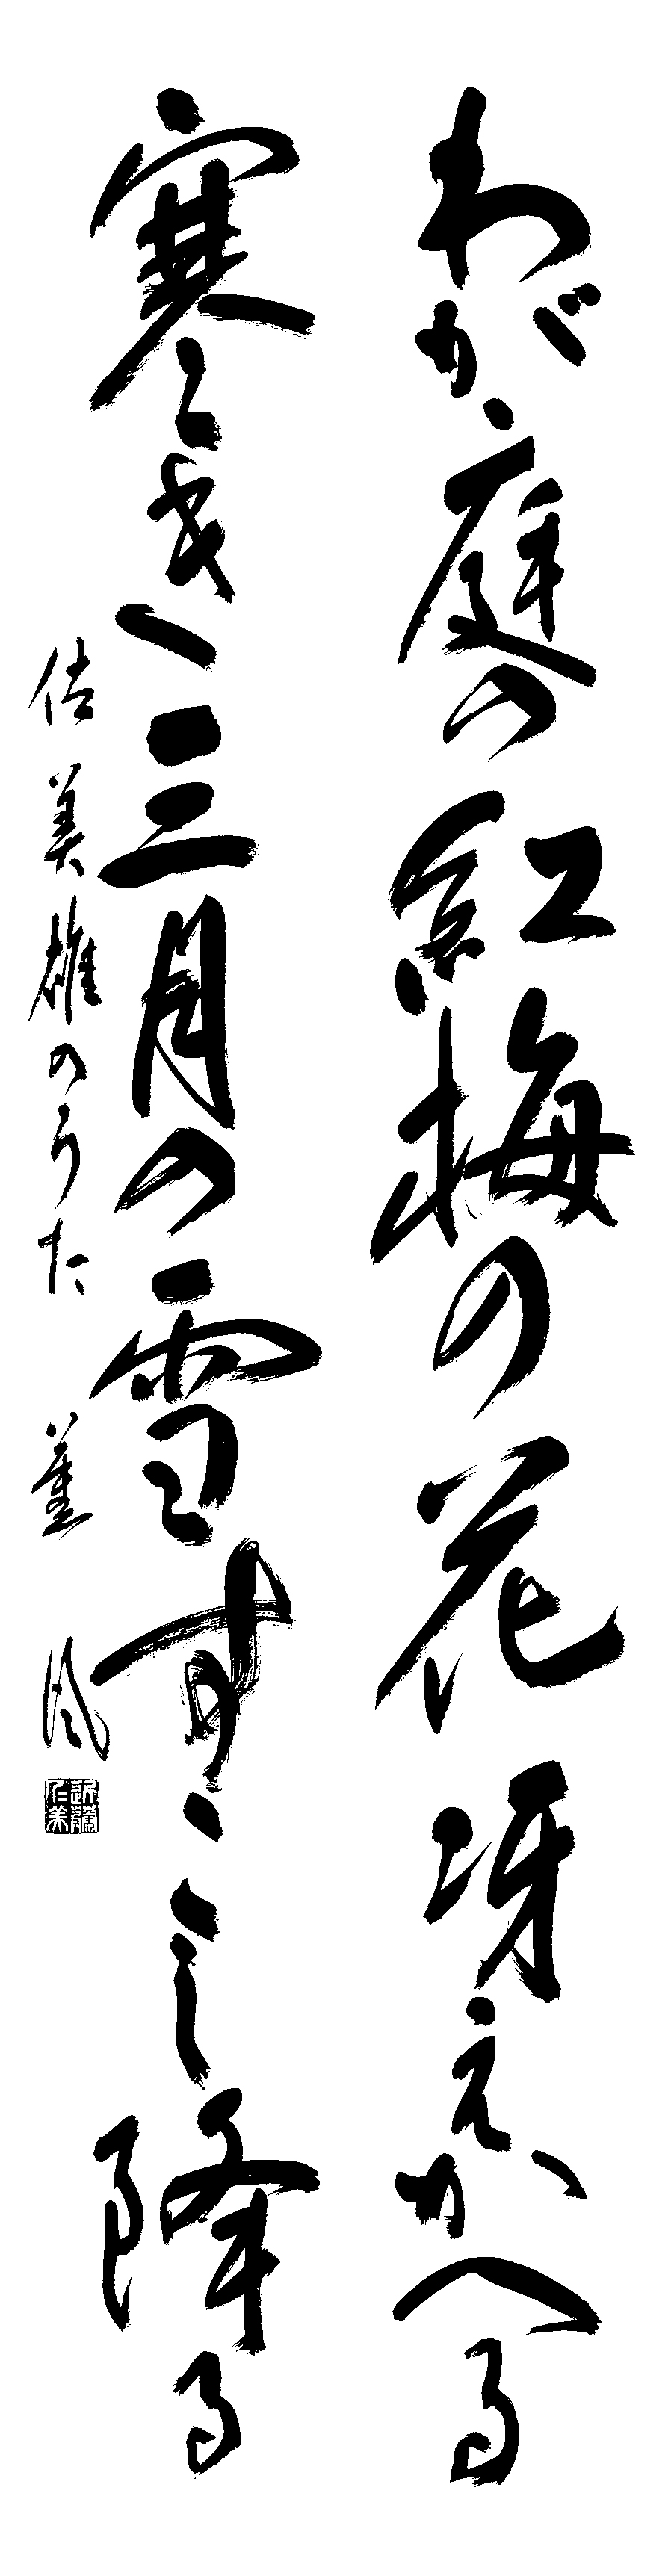 わが庭の紅梅の花冴えかへる
寒き三月の雪すこし降る
佐美雄のうた 薫風